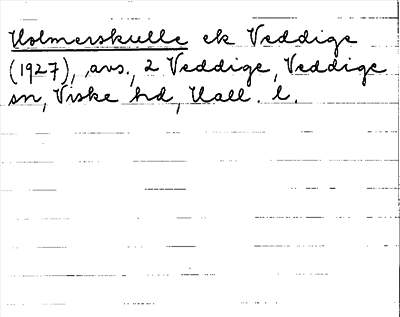 Holmerskulle ek Veddige
(1927), avs., 2 Veddige, Veddige
sn, Viske hd, Hall. l.